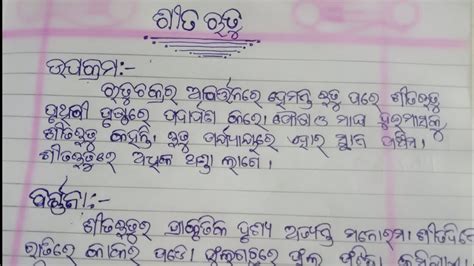 ଶୀତ ଋତୁ
ଉପକ୍ରମ:-
ଋତୁଚକ୍ରର ଆବର୍ତ୍ତନରେ ହେମନ୍ତ ଋତୁ ପରେ ଶୀତଋତୁ
ପୃଥିବୀ ପୃଷ୍ଠରେ ପଦାର୍ପଣ କରେ। ପୌଷ ଓ ମାଘ ଦୁଇମାସକୁ
ଶୀତଋତୁ କହନ୍ତି। ଋତୁ ପର୍ଯ୍ୟାୟରେ ଏହାର ସ୍ଥାନ ପଞ୍ଚମ।
ଶୀତଋତୁରେ ଅଧିକ ଥଣ୍ଡା ଲାଗେ।
ବର୍ଣ୍ଣନା:-
ଶୀତଋତୁର ପ୍ରାକୃତିକ ଦୃଶ୍ୟ ଅତ୍ୟନ୍ତ ମନୋରମ। ଶୀତଦିନେ
ରାତିରେ କାକର ପଡେ। ଫୁଲଗଛରେ ଫୁଲ